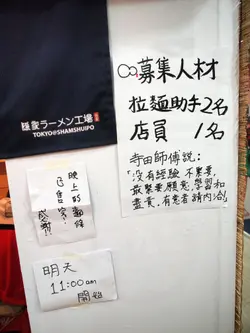 ラーメン工場
TOKYO@SHAMSHUIPO
募集人材
拉麵助手2名
店員 1名
寺田師傅説:
「沒有經驗 不要緊,
最緊要願意學習和
盡責。有意者請內洽」
晚上的麵條
已售完!
感謝!!
明天
11:00am
開始